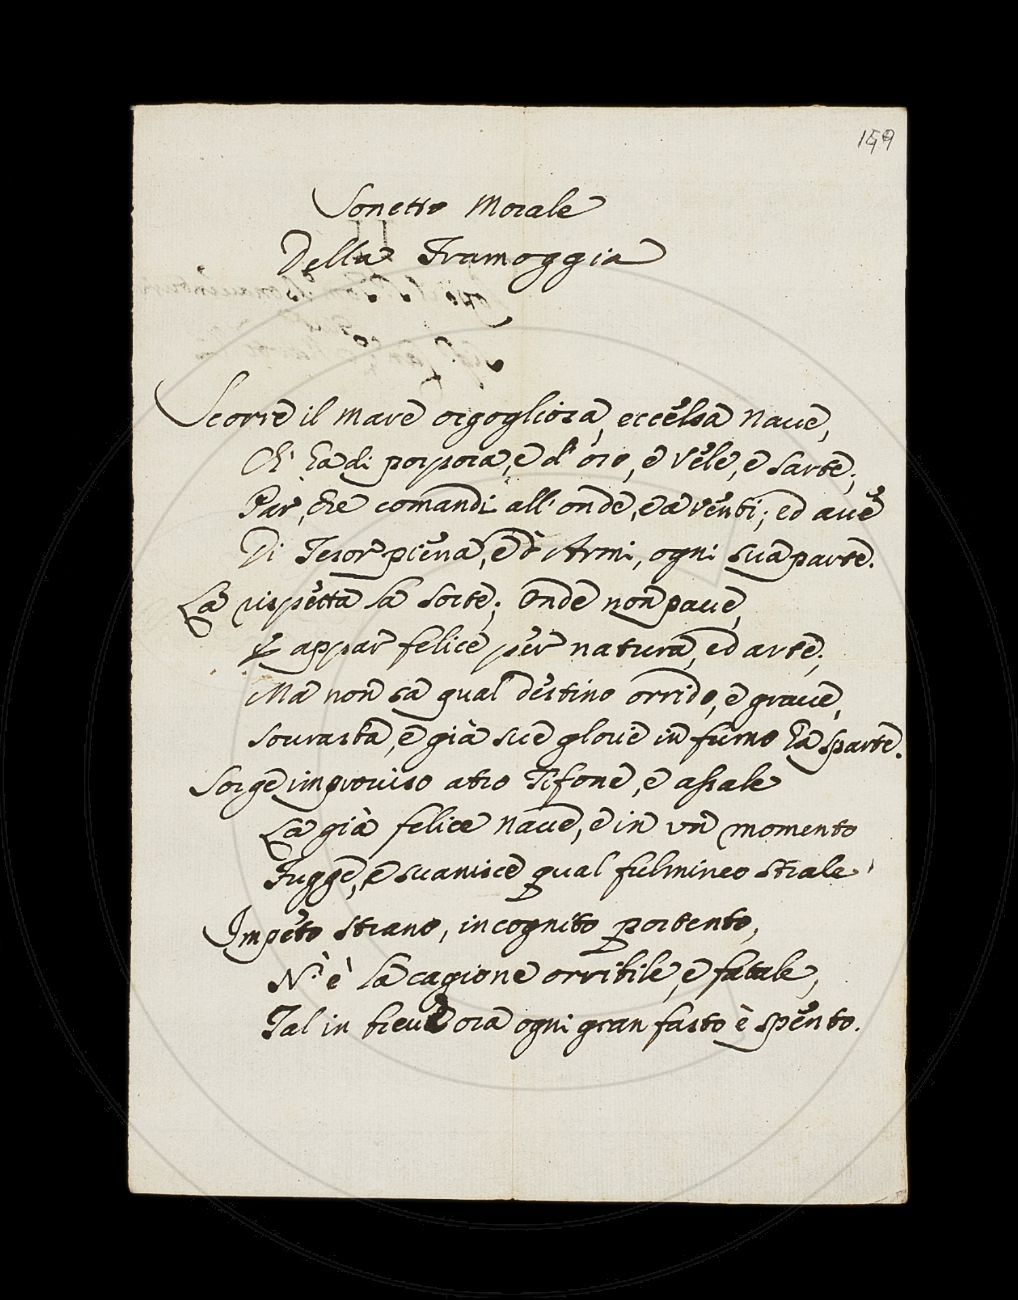 159
Sonetto Morale
Della Tramoggia
Scorre il mare orgogliosa, eccelsa Naue,
Ch' ha di porpora, e d' oro, e vele, e sarte;
Par, che comandi all' onde, e a venti; ed aue
Di Tesor piena, e d' Armi, ogni sua parte.
La rispetta la sorte; Onde non paue,
E appar felice per natura, ed arte;
Ma non sa qual destino orrido, e graue,
Sourasta, e già sue glorie in fumo ha sparte.
Sorge improuiso atro Tifone, e assale
La già felice Naue, e in vn momento
Fugge, e suanisce qual fulmineo strale
Impeto strano, incognito portento,
N' è la cagione orribile, e fatale,
Tal in breue ora ogni gran fasto è spento.